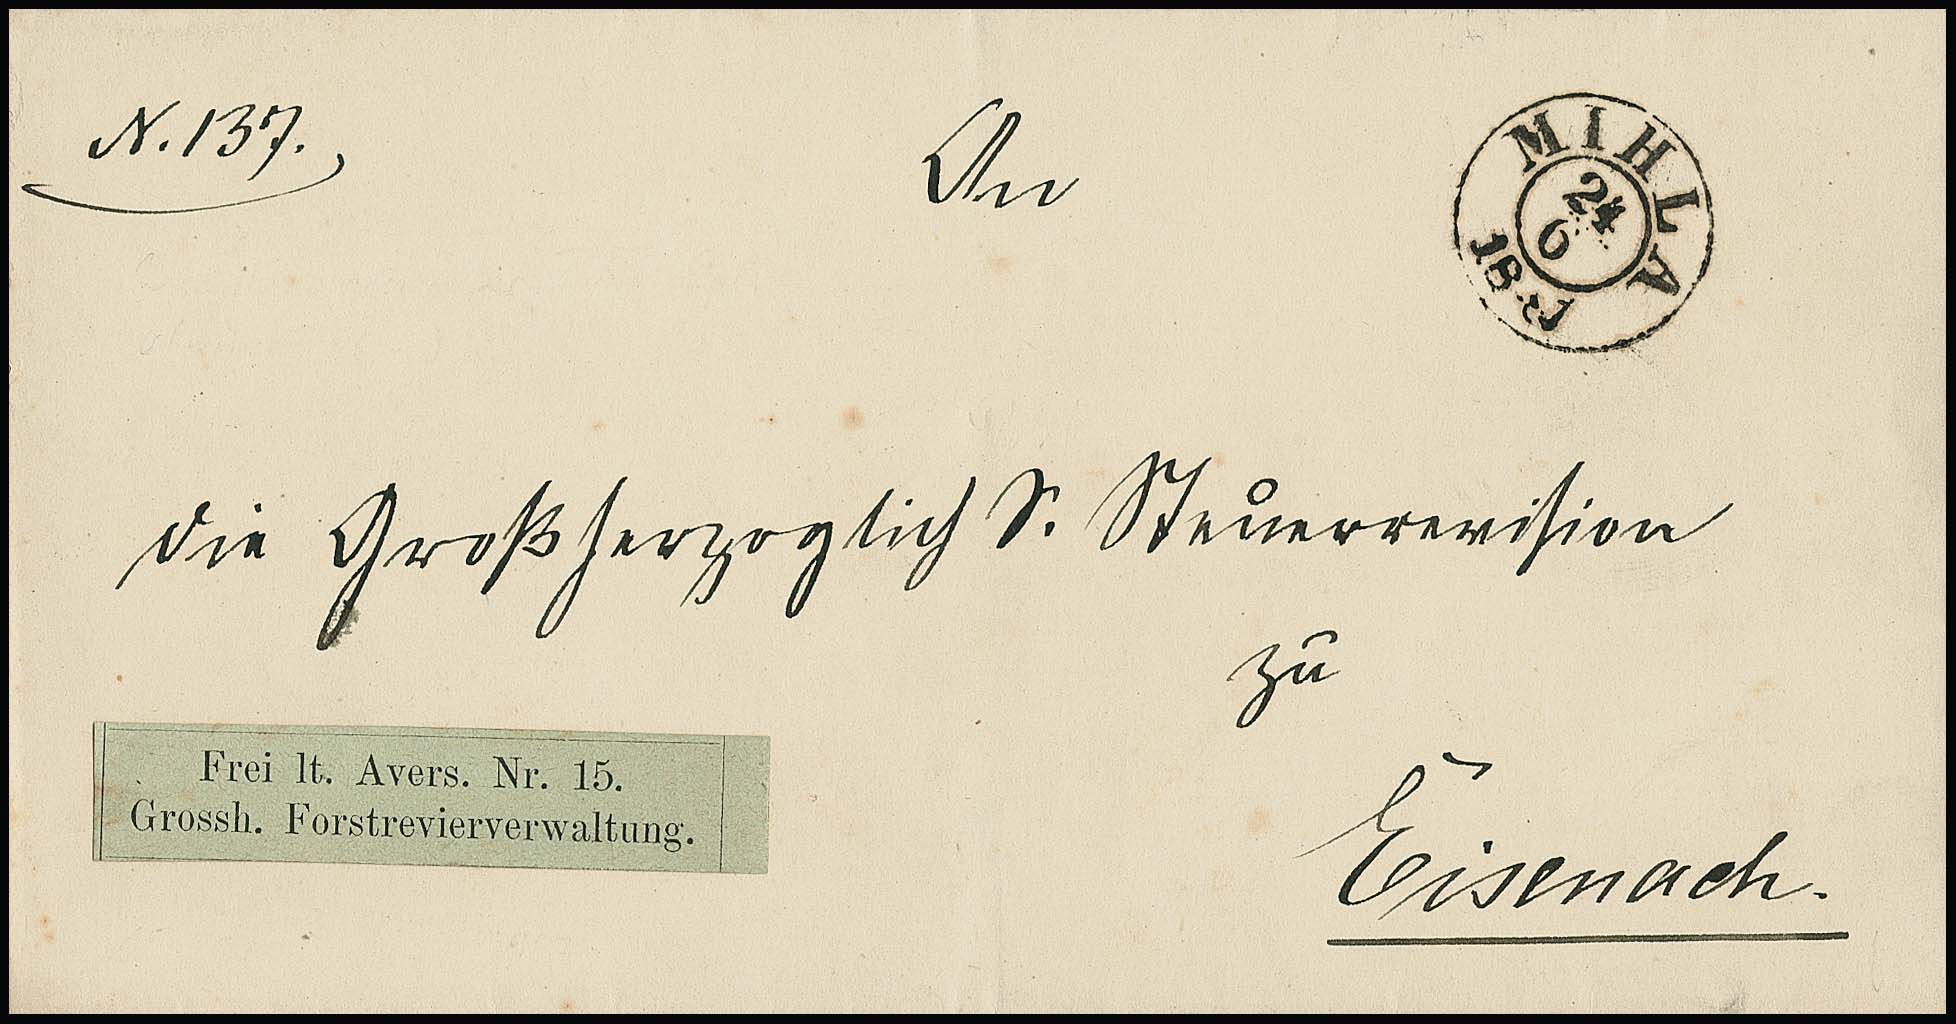 N. 137.
An
MIHLA
24
6
18
die Großherzoglich S. Steuerrevision
zu
Eisenach.
Frei lt. Avers. Nr. 15.
Grossh. Forstrevierverwaltung.